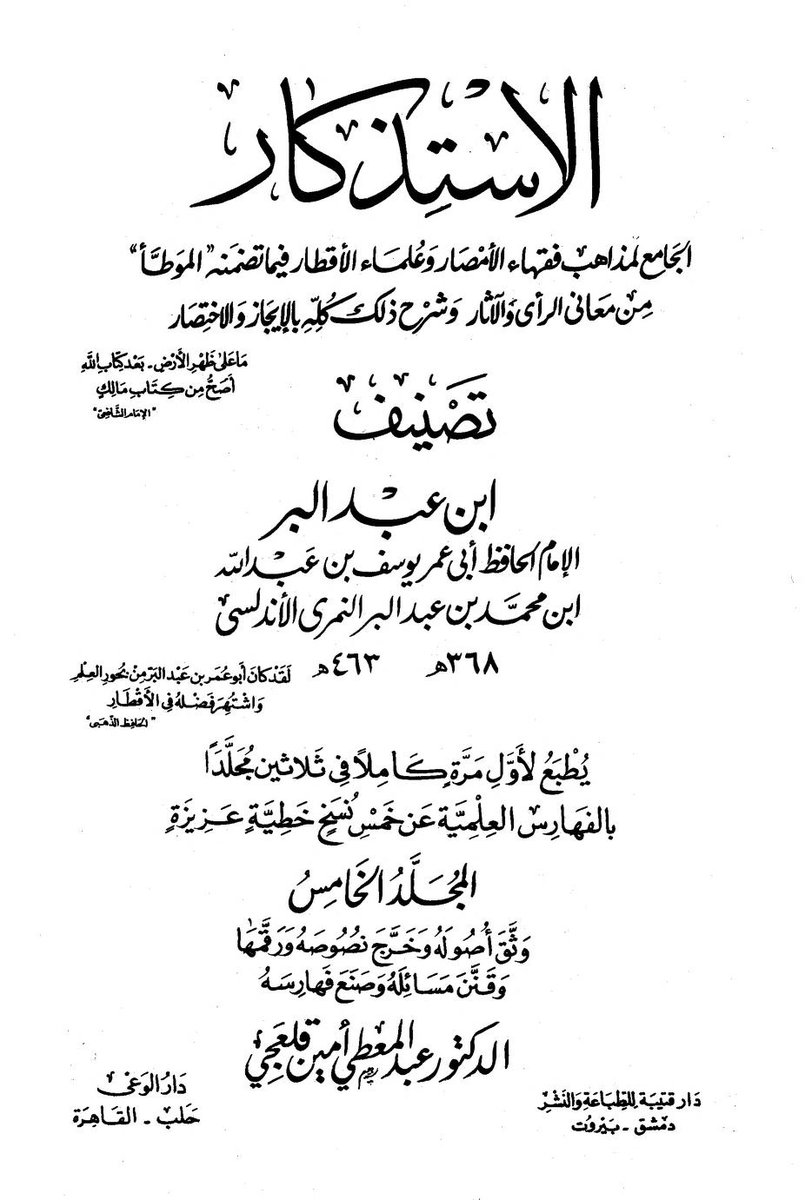 الاسْتِذكار
الجَامع لمذاهب فقهاء الأمْصار وَعُلماء الأقطار فيما تضمنه "الموَطَّأ"
مِن مَعَاني الرأى والآثار وَشرْح ذلك كُلِّه بالإيجاز وَالاختِصار
مَا عَلىٰ ظَهْرِ الأَرْضِ - بَعْد كِتابِ اللَّهِ
أصَحُّ مِن كِتَابِ مَالِكٍ
"الإمام الشَّافِعِيّ"
تَصْنيف
ابن عبد البر
الإمام الحافظ أبي عمر يوسف بن عَبد الله
ابن محمَّد بن عبد البر النمرى الأندلسى
٣٦٨هـ ٤٦٣هـ
لَقَدْ كَانَ أَبو عُمَر بن عَبْد البَرّ مِنْ بُحُورِ العِلْمِ
وَاشْتُهِرَ فَضْلهُ فِي الأَقْطَارِ
"الحَافِظ الذَّهَبِى"
يُطْبَعُ لأَوَّلِ مَرَّةٍ كَامِلاً فِي ثَلَاثين مُجَلَّدًا
بالفَهَارِسِ العِلْمِيَّة عَن خَمْسِ نُسَخٍ خَطِيَّةٍ عَزِيزَةٍ
المُجَلَّدُ الخَامِسُ
وَثَّقَ أُصُولَهُ وَخَرَّجَ نصُوصَهُ وَرَقَّمَهَا
وَقَنَّنَ مَسَائِلَهُ وَصَنَعَ فَهَارِسَهُ
الدكتور عبد المعطي أمين قلعجي
دَار قتيبَة لِلطِّبَاعَةِ وَالنَّشْرِ
دمَشق - بَيْرُوت
دَارُ الوَعْى
حَلب - القَاهِرَة